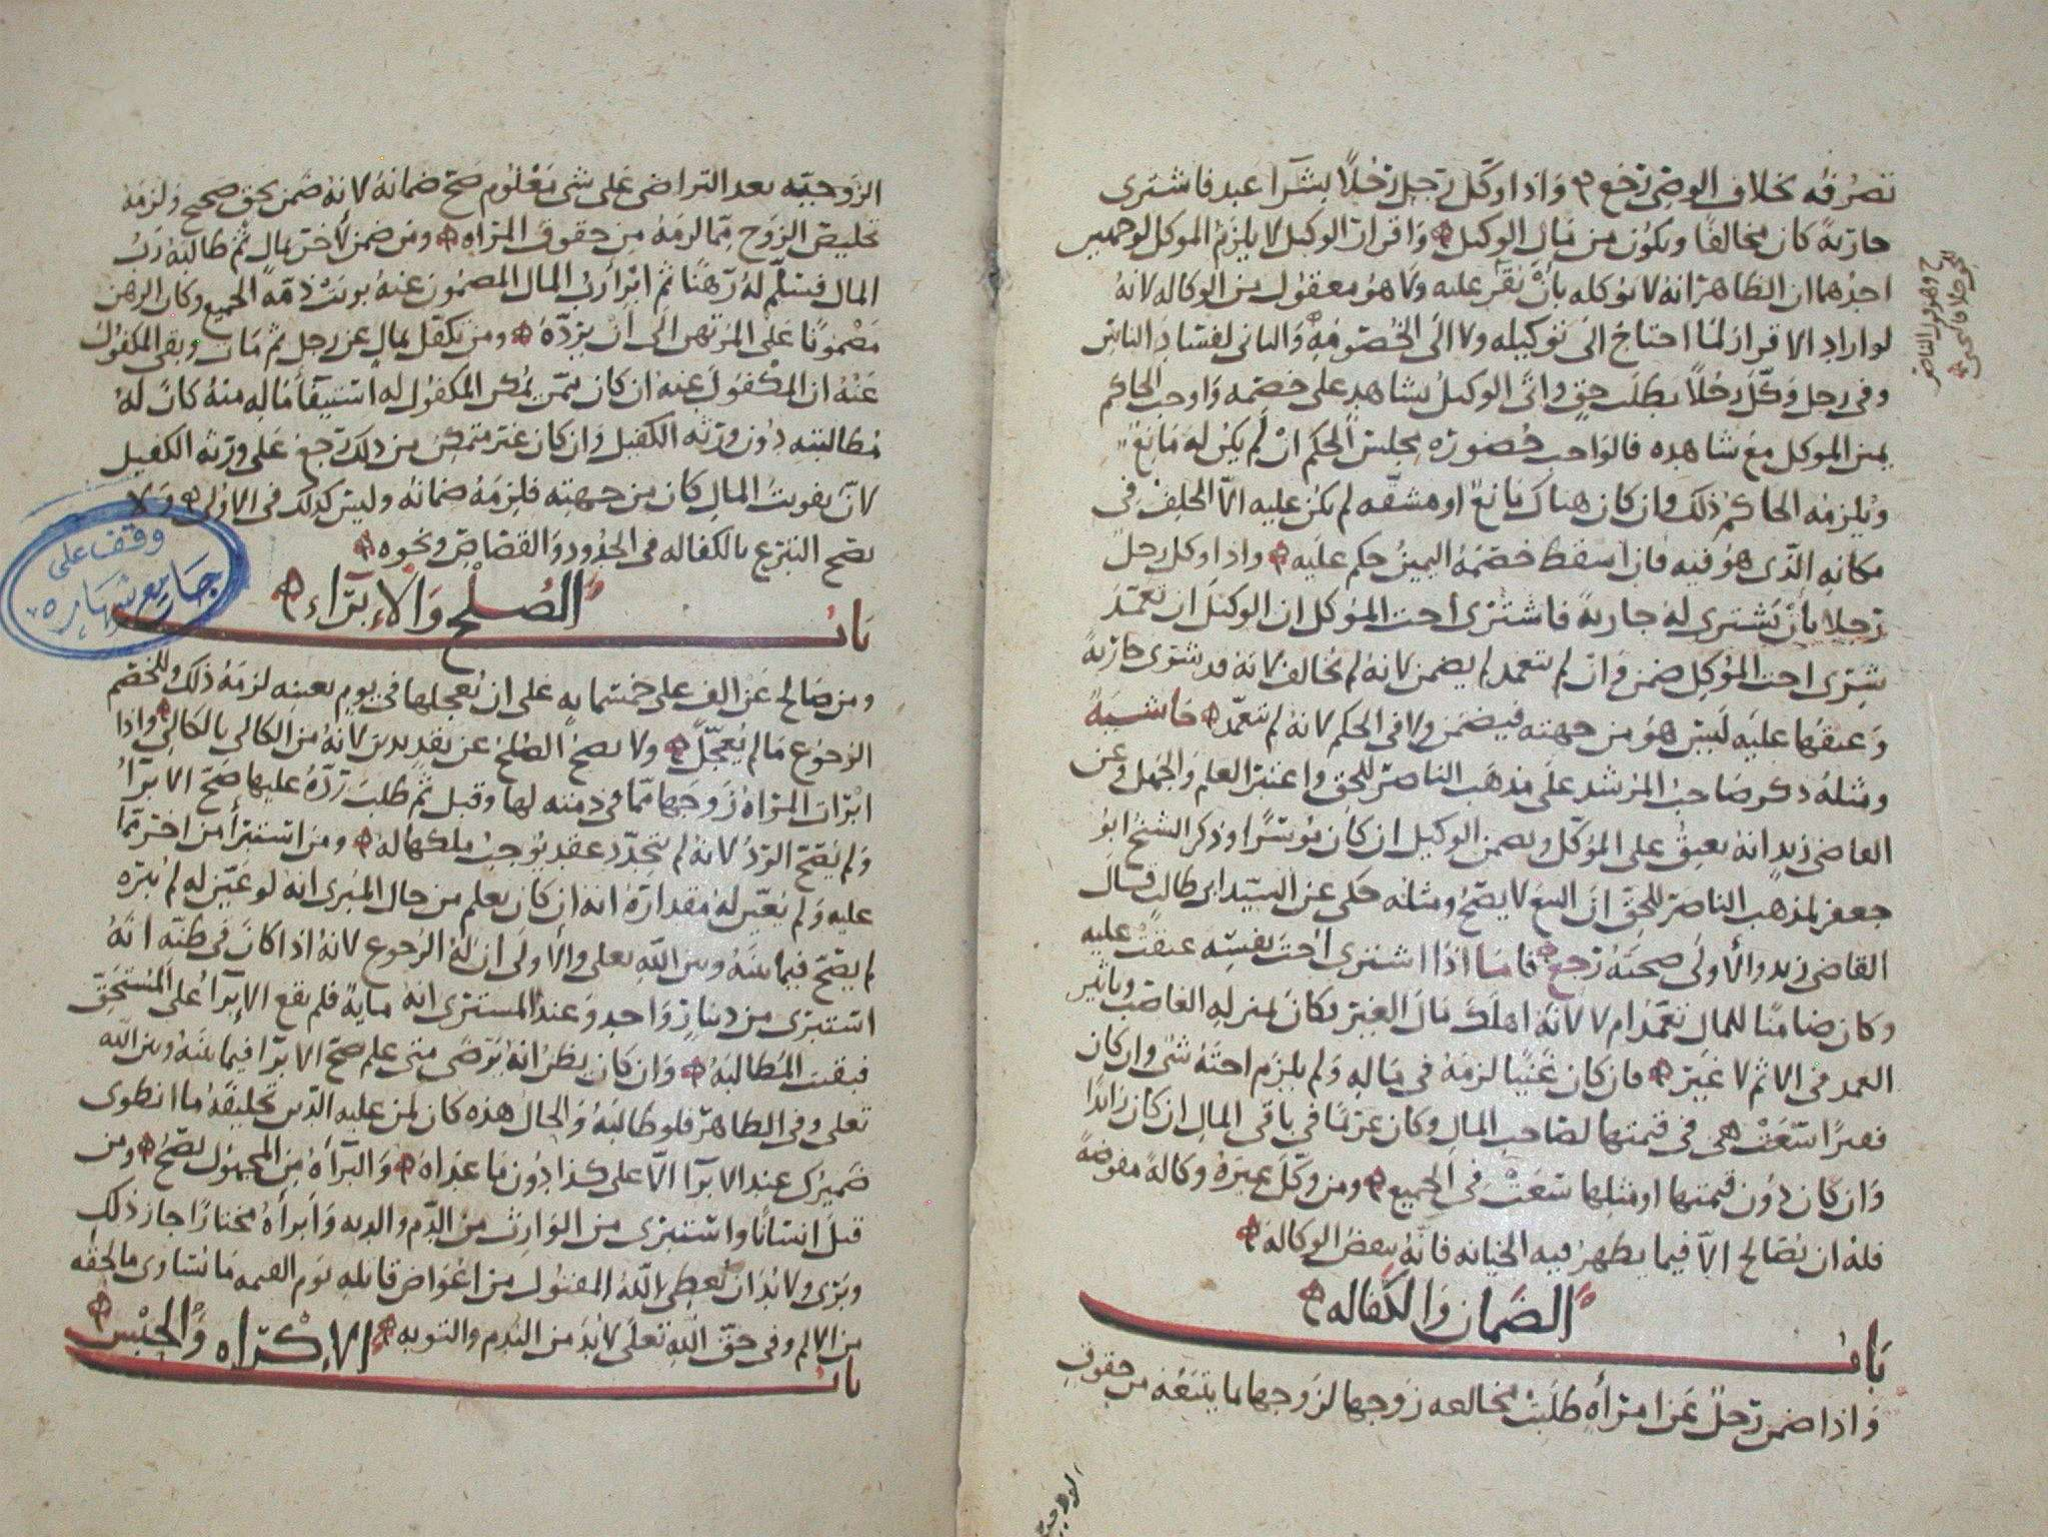 تصرفه بخلاف الوصى رجع واذا وكل رجل رجلا بشرآ عبد فاشترى
جاريه كان مخالفا ويكون من مال الوكيل واقرار الوكيل لا يلزم الموكل لوجهين
احدهما ان الظاهر انه لا يوكله بان يقر عليه ولا هو معقول من الوكاله لانه
لو اراد الاقرار لما احتاج الى توكيله ولا الى الخصومه والثانى لفساد الناس
وفى رجل وكل رجلا بطلب حق واتى الوكيل بشاهد على خصمه واوجب الحاكم
يمين الموكل مع شاهده فالواجب حضوره مجلس الحكم ان لم يكن له مانع
ويلزمه الحاكم ذلك وان كان هناك مانع او مشقه لم يكن عليه الا الحلف فى
مكانه الذى هو فيه فان اسقط خصمه اليمين حكم عليه واذا وكل رجل
رجلا بان يشترى له جاريه فاشترى اخت الموكل ان الوكيل ان تعمد
شرى اخت الموكل ضمن وان لم يتعمد لم يضمن لانه لم يخالف لانه قد شترى جاريه
وعتقها عليه ليس هو من جهته فيضمن ولا فى الحكم لانه لم يتعمد حاشيه
ومثله ذكر صاحب المرشد على مذهب الناصر للحق واعتبر العلم والجهل وعن
القاضى زيد انه يعتق على الموكل ويضمن الوكيل ان كان موسرا وذكر الشيخ ابو
جعفر لمذهب الناصر للحق ان البيع لا يصح ومثله حكى عن السيد ابى طالب قال
القاضى زيد والأولى صحته رجع فاما اذا اشترى اخت نفسه عتقت عليه
وكان ضامنا للمال تعمد ام لا لانه اهلك مال الغير فكان بمنزله الغاصب وتاثير
العمد فى الاثم لا غير فان كان غنيا لزمه فى ماله ولم يلزم اخته شى وان كان
فقيرا سعت هى فى قيمتها لصاحب المال وكان غرما فى باقى المال ان كان زائدا
وان كان دون قيمتها او مثلها سعت فى الجميع ومن وكل غيره وكالة مفوضة
فله ان يصالح الا فيما يظهر فيه الخيانه فانه ينقض الوكاله
باب الضمان والكفاله
واذا ضمن رجل عن امرأه طلبت مخالعه زوجها لزوجها ما يتبعه من حقوق
الزوجيه
الزوجيه بعد التراضى على شى معلوم صح ضمانه لانه ضمن بحق صحيح ولزمه
تخليص الزوج مما لزمه من حقوق المراه ومن ضمن لأخر بمال ثم طالبه رب
المال فسلم له رهنا ثم ابرأ رب المال المضمون عنه بريت ذمه الجميع وكان الرهن
مضمونا على المرتهن الى ان يرده ومن تكفل بمال عن رجل ثم مات وبقى المكفول
عنه ان المكفول عنه ان كان ممن يمكن المكفول له استيفأ ماله منه كان له
مطالبته دون ورثه الكفيل وان كان غير متمكن من ذلك رجع على ورثه الكفيل
لان تفويت المال كان من جهته فلزمه ضمانه وليس كذلك فى الاولى ولا
يصح التبرع بالكفاله فى الحدود والقصاص ونحوه
وقف على
جامع شهاره
باب الصلح والإبرآء
ومن صالح عن الف على خمسمايه على ان يعجلها فى يوم بعينه لزمه ذلك وللخصم
الرجوع مالم يعجل ولا يصح الصلح عن نقد بدين لانه من الكالى بالكالى واذا
ابرات المراه زوجها مما فى ذمته لها وقبل ثم طلب رده عليها صح الابرآ
ولم يصح الرد لانه لم يتجدد عقد يوجب ملكها له ومن استبرأ من اخر مما
عليه ولم يعين له مقداره انه ان كان يعلم من حال المبرى انه لو عين له لم يبره
لم يصح فيما بينه وبين الله تعلى والاولى ان له الرجوع لانه اذا كان فى ظنه انه
استبرى من دينار واحد وعند المستبرى انه مايه فلم يقع الإبرآ على المستحق
فبقيت المطالبه وان كان يظن انه يرضى متى علم صح الابرا فيما بينه وبين الله
تعلى وفى الظاهر فلو طالبه والحال هذه كان لمن عليه الدين تحليفه ما انطوى
ضميرك عند الابرآ الا على كذا دون ما عداه والبرأه من المجهول تصح ومن
قتل انسانا واستبرى من الوارث من الدم والديه وأبرأه مختارا جاز ذلك
وبرى ولا بد ان يعطى الله المقتول من اعواض قاتله يوم القيمه ما يساوى ما لحقه
من الالم وفى حق الله تعلى لا بد من الندم والتوبه
باب الإكراه والحبس